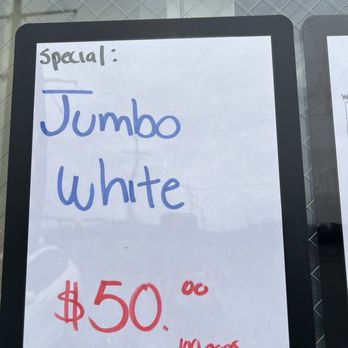 Special:
Jumbo
White
$50.00